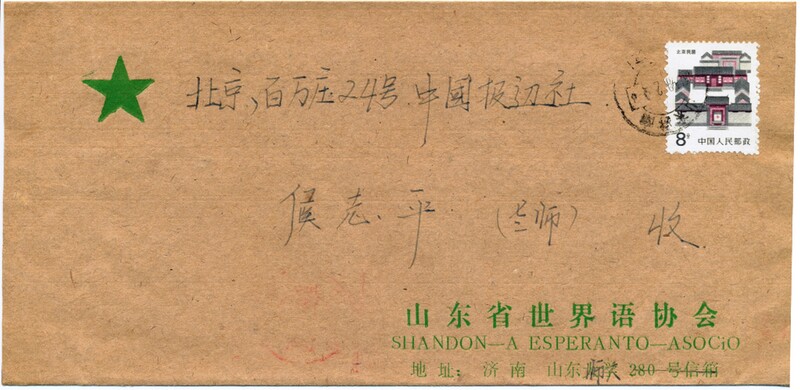 北京民居
8分
中国人民邮政
北京、百万庄24号.中国报边社
侯志平 (老师) 收
山东省世界语协会
SHANDON—A ESPERANTO—ASOCiO
地址: 济南 山东师大 280 号信箱